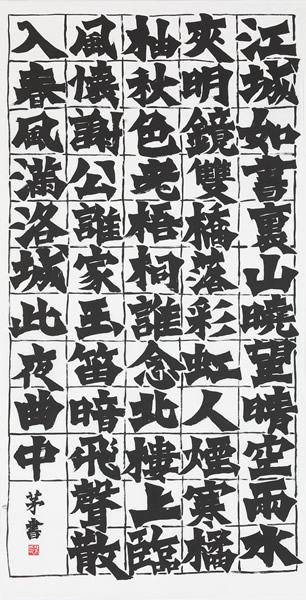 江城如畫裏山曉望晴空雨水
夾明鏡雙橋落彩虹人煙寒橘
柚秋色老梧桐誰念北樓上臨
風懷謝公誰家玉笛暗飛聲散
入春風滿洛城此夜曲中
茅書